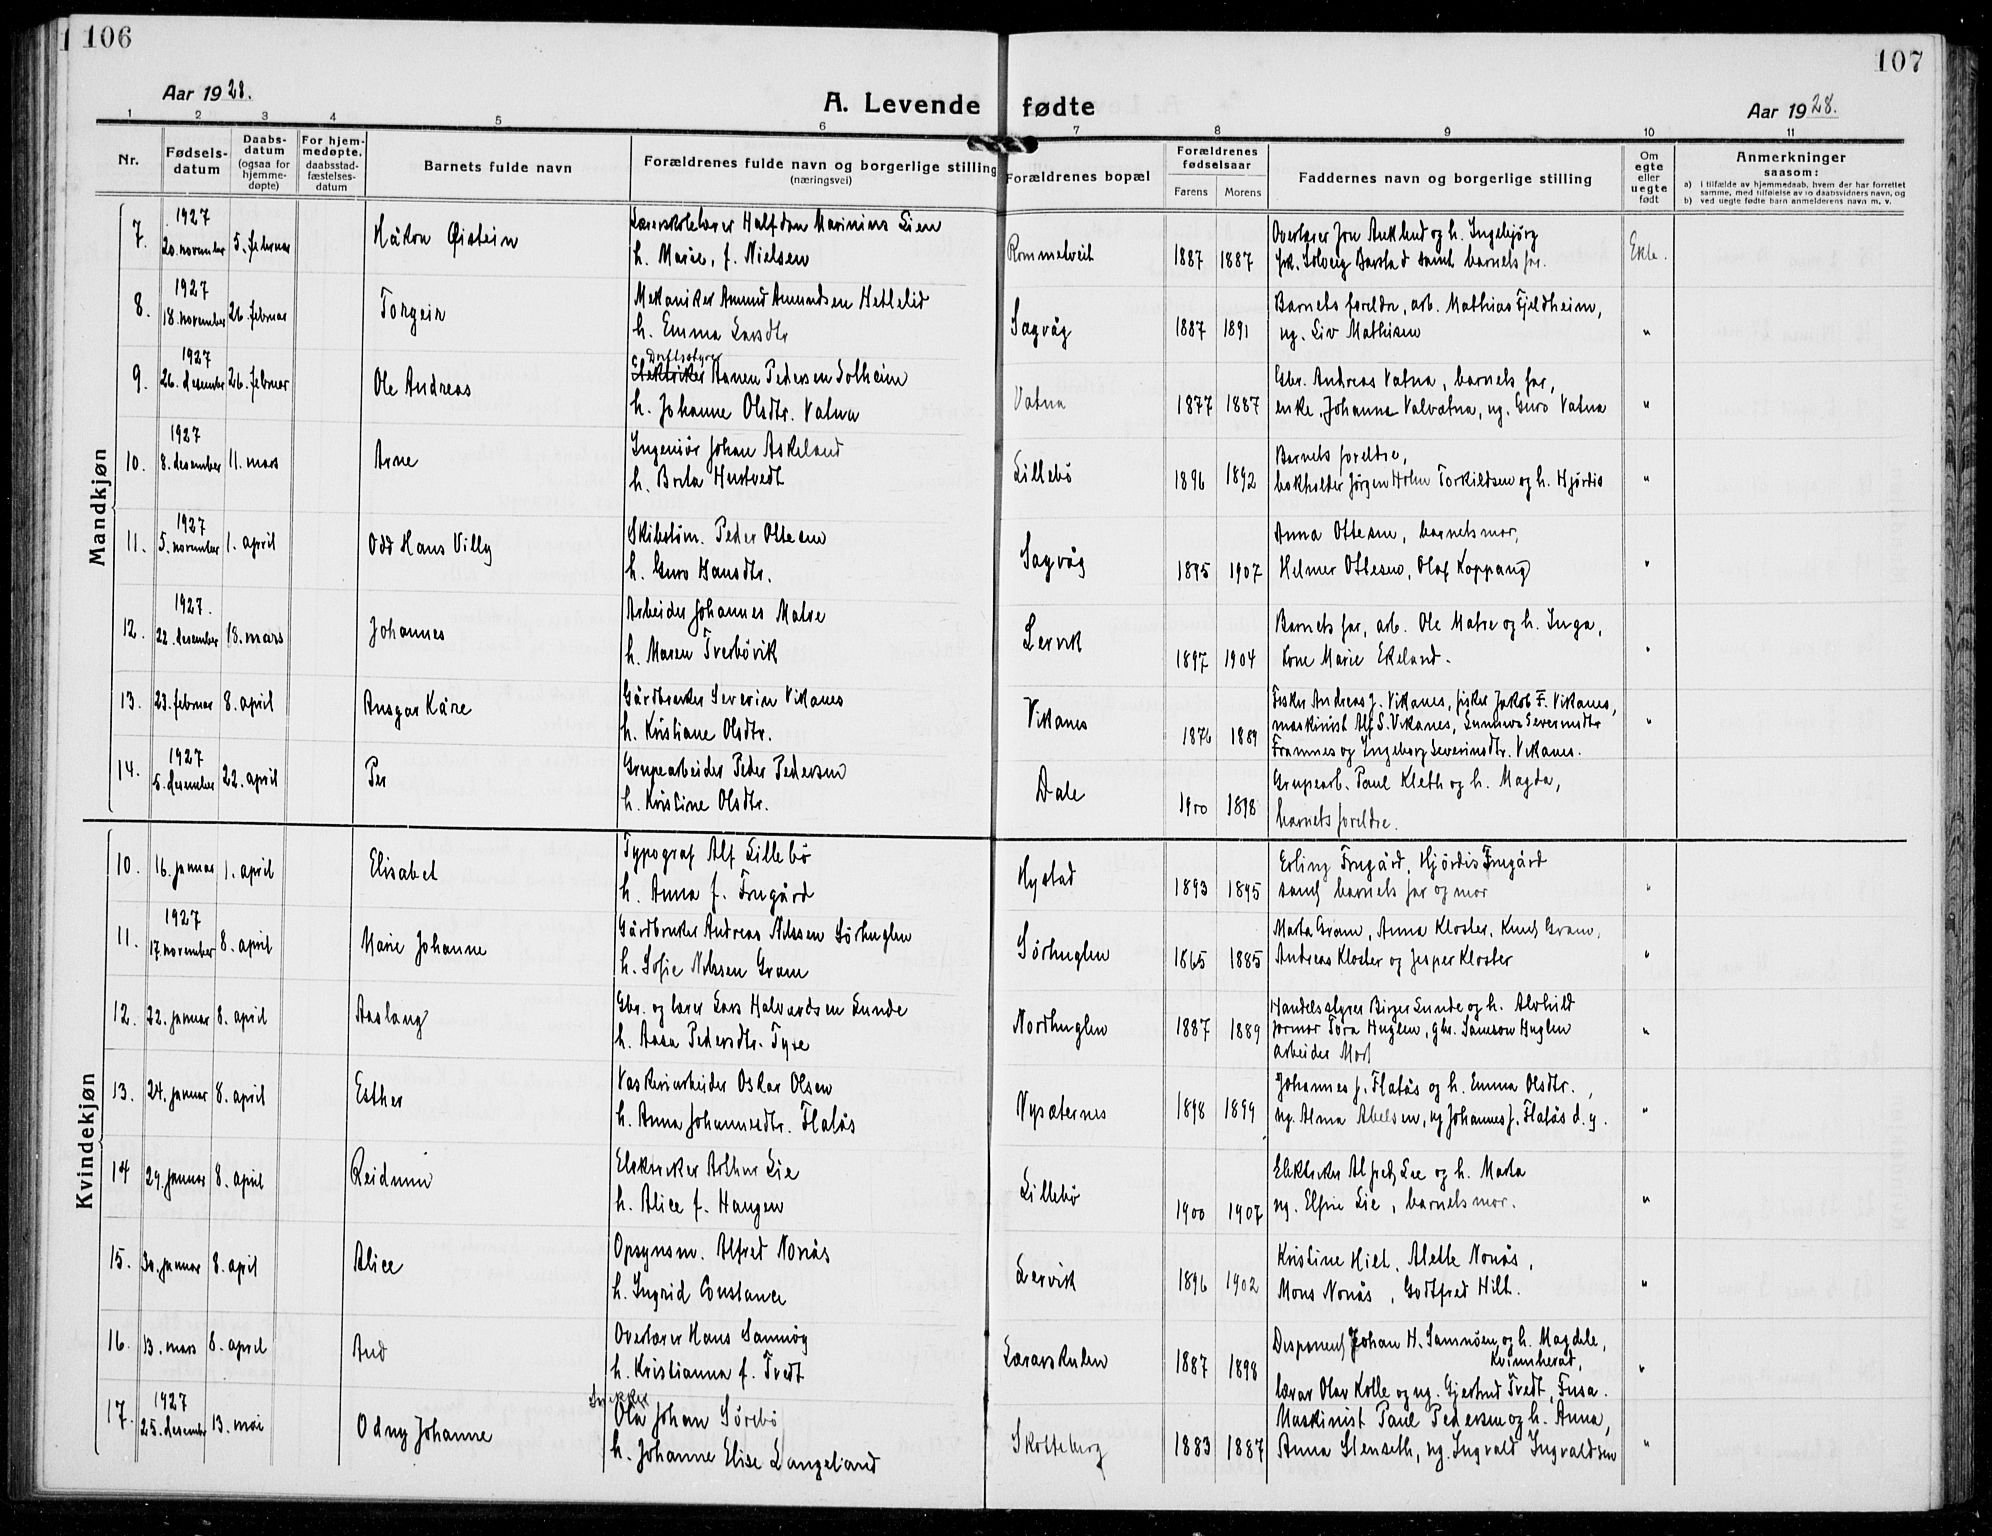 106
107
Aar 1928.
A. Levende fødte
Aar 1928.
1 2 3 4 5 6 7 8 9 10 11
Nr.
Fødselsdatum
Daabsdatum (ogsaa for hjemmedøpte)
For hjemmedøpte, daabsstadfæstelsesdatum
Barnets fulde navn
Forældrenes fulde navn og borgerlige stilling (næringsvei)
Forældrenes bopæl
Forældrenes fødselsaar
Farens
Morens
Faddernes navn og borgerlige stilling
Om egte eller uegte født
Anmerkninger saasom:
a) I tilfælde av hjemmedaab, hvem der har forrettet samme, med tilføielse av to daabsvidners navn, og
b) ved uegte fødte barn anmelderens navn m. v.
Mandkjøn
7. 1927 20. november 5. februar Håkon Øistein
Lærerskolelærer Halfdan Marinius Lien
h. Marie, f. Nielsen
Rommetveit 1887 1887
Overlærer Jon Auklend og h. Ingebjørg
frk. Solveig Barstad samt barnets far.
Ekte.
8. 1927 18. november 26. februar Torgeir
Mekaniker Amund Amundsen Hetlelid
h. Emma Larsdtr
Sagvåg 1887 1891
Barnets foreldre, arb. Mathias Fjeldheim,
ug. Liv Mathisen
"
9. 1927 26. desember 26. februar Ole Andreas
Driftsstyrer
Elektriker Aanen Pedersen Solheim
h. Johanne Olsdtr. Vatna
Vatna 1877 1887
Gbr. Andreas Vatna, barnets far,
enke Johanna Valvatna, ug. Guro Vatna
"
10. 1927 8. desember 11. mars Arne
Ingeniør Johan Askeland
h. Borla Hustvedt
Lillebø 1896 1892
Barnets foreldre,
bokholder Jørgen Holm Torkildsen og h. Hjørdis
"
11. 1927 5. november 1. april Odd Hans Villy
Skibstøm. Peder Ottesen
h. Guro Hansdtr.
Sagvåg 1895 1907
Anna Ottesen, barnets mor,
Helmer Ottesen, Olaf Koppang
"
12. 1927. 22. desember 18. mars Johannes
Arbeider Johannes Matre
h. Maren Tverbøvik
Lervik 1897 1904
Barnets far, arb. Ole Matre og h. Inga,
kone Marie Ekeland.
"
13. 23. februar 8. april Ansgar Kåre
Gårdbruker Severin Vikanes
h. Kristiane Olsdtr.
Vikanes 1876 1889
Fisker Andreas J. Vikanes, fisker Jakob F. Vikanes,
maskinist Alf S. Vikanes, Sunniva Severinsdtr
Framnes og Ingeborg Severinsdtr. Vikanes.
"
14. 1927 5. desember 22. april Per
Grupearbeider Peder Pedersen
h. Kristine Olsdtr.
Dale 1900 1898
Grupearb. Paul Kleth og h. Magda,
barnets foreldre.
Kvindekjøn
10. 16. januar 1. april Elisabet
Typograf Alf Lillebø
h. Anna f. Frugård
Hystad 1893 1895
Erling Frugård, Hjørdis Frugård
samt barnets far og mor
"
11. 1927 17. november 8. april Marie Johanne
Gårdbruker Andreas Nilssen Sørhuglen
h. Sofie Nilssen Gram
Sørhuglen 1865 1885
Marta Gram, Anna Kloster, Knut Gram,
Andreas Kloster og Jesper Kloster
"
12. 22. januar 8. april Aaslaug
Gbr. og lærer Lars Halvardsen Lunde
h. Aasa Pedersdtr. Tyse
Nordhuglen 1887 1889
Handelsstyrer Birger Lunde og h. Alvhild
farmor Tora Huglen, gbr. Samson Huglen
arbeider
"
13. 24. januar 8. april Esther
Vaskeriarbeider Oskar Olsen
h. Anna Johannesdtr. Flatås
Vysæternes 1898 1899
Johannes J. Flatås og h. Emma Olsdtr.,
ug. Alma Abelsen, ug Johannes J. Flatås d. y.
"
14 29. januar 8. april Reidunn
Elektriker Arthur Lie
h. Alice f. Haugen
Lillebø 1900 1907
Elektriker Alfred Lie og h. Marta
ug. Elfrie Lie, barnets mor.
"
15. 30. januar 8. april Alice
Opsynsm. Alfred Nonås
h. Ingrid Constance
Lervik 1896 1902
Kristine Hilt, Alette Nonås,
Mons Nonås, Godtfred Hilt.
"
16. 13. mars 8. april Aud
Overlærer Hans Samnøy
h. Kristianna f. Tvedt
Lærarskulen 1887 1898
Disponent Johan H. Samnøen og h. Magdele,
Kvinnherad,
lærar Olav Kolle og ug. Gjertrud Tvedt, Fusa.
"
17. 1927 25. desember 13. mai Odny Johanne
Snekker
Ola Johan Sørebø
h. Johanne Elise Langeland
Skotteborg 1883 1887
Maskinist Paul Pedersen og h. Anna,
Anna Stenseth, ug. Ingvald Ingvaldsen
"